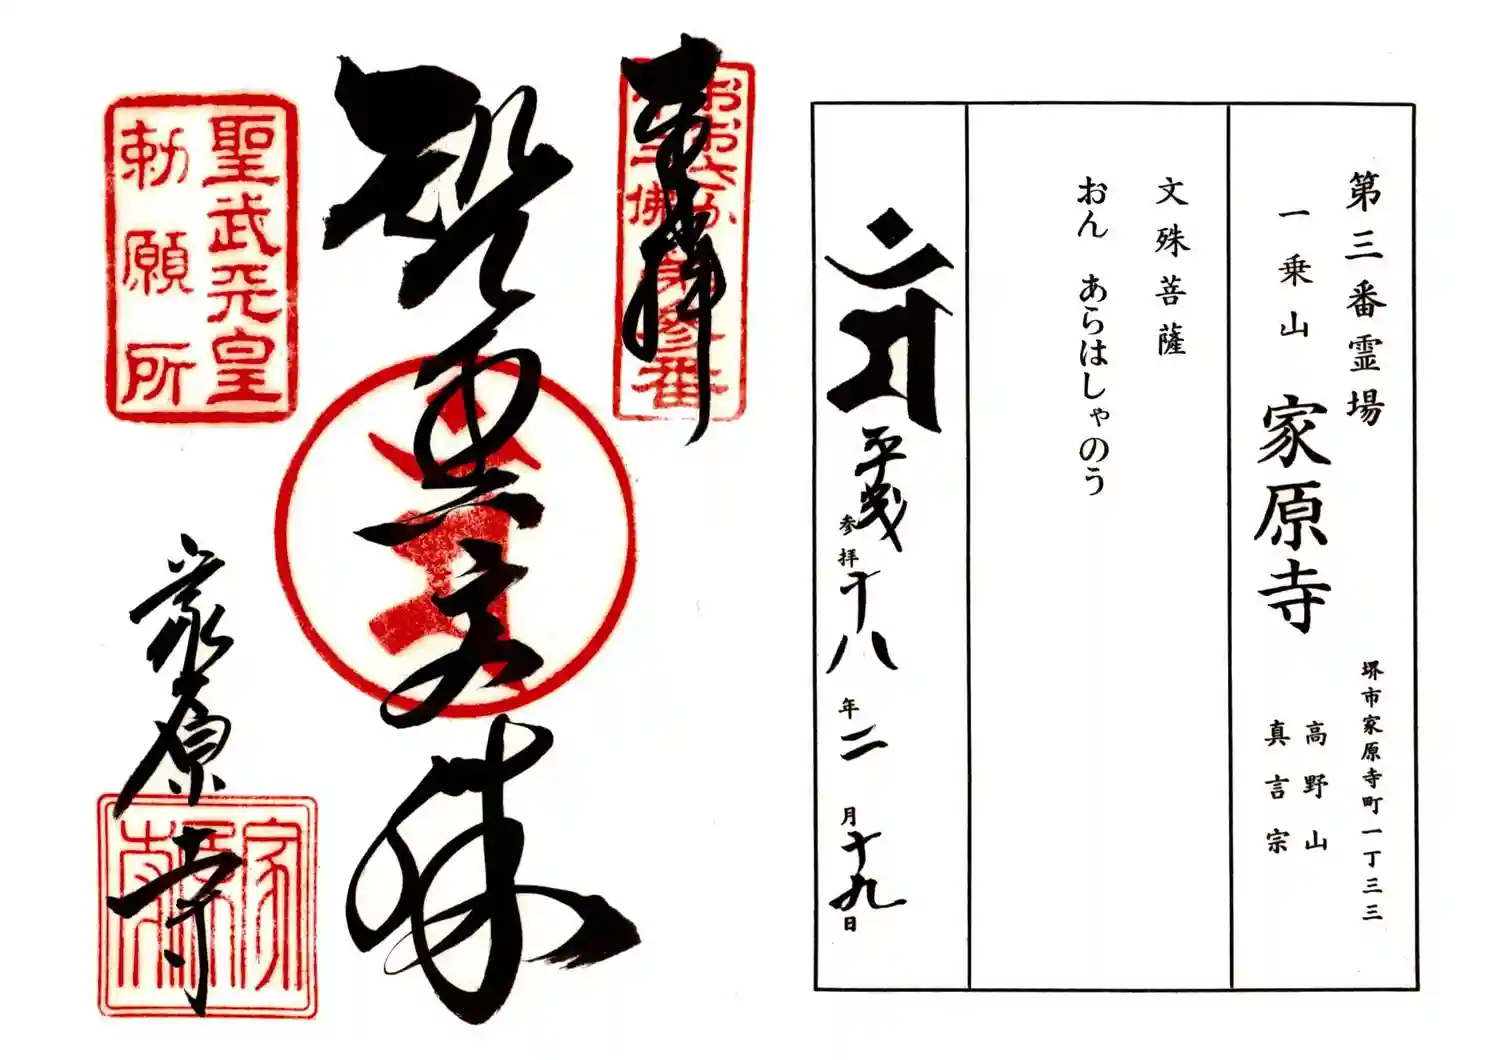 第三番霊場
一乗山 家原寺
堺市家原寺町一丁三三
高野山
真言宗
文殊菩薩
おん あらはしゃのう
平成
参拝十八年二月十九日
奉拝
おおさか
佛
参番
智恵文殊
聖武天皇
勅願所
家原寺
家原寺